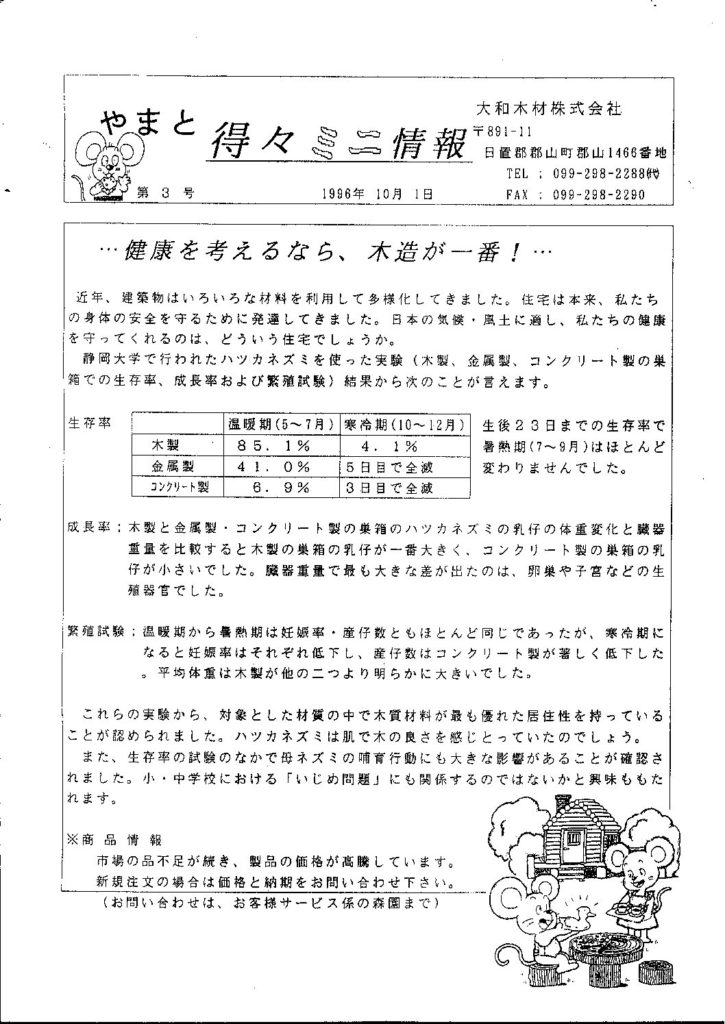 やまと 得々ミニ情報
大和木材株式会社
〒891-11
日置郡郡山町郡山1466番地
TEL : 099-298-2288㈹
FAX : 099-298-2290
第 3 号 1996年 10月 1日
…健康を考えるなら、木造が一番！…
近年、建築物はいろいろな材料を利用して多様化してきました。住宅は本来、私たち
の身体の安全を守るために発達してきました。日本の気候・風土に適し、私たちの健康
を守ってくれるのは、どういう住宅でしょうか。
静岡大学で行われたハツカネズミを使った実験（木製、金属製、コンクリート製の巣
箱での生存率、成長率および繁殖試験）結果から次のことが言えます。
生存率
温暖期(5～7月) 寒冷期(10～12月)
木製 85.1% 4.1%
金属製 41.0% 5日目で全滅
コンクリート製 6.9% 3日目で全滅
生後23日までの生存率で
暑熱期(7～9月)はほとんど
変わりませんでした。
成長率；木製と金属製・コンクリート製の巣箱のハツカネズミの乳仔の体重変化と臓器
重量を比較すると木製の巣箱の乳仔が一番大きく、コンクリート製の巣箱の乳
仔が小さいでした。臓器重量で最も大きな差が出たのは、卵巣や子宮などの生
殖器官でした。
繁殖試験；温暖期から暑熱期は妊娠率・産仔数ともほとんど同じであったが、寒冷期に
なると妊娠率はそれぞれ低下し、産仔数はコンクリート製が著しく低下した
。平均体重は木製が他の二つより明らかに大きいでした。
これらの実験から、対象とした材質の中で木質材料が最も優れた居住性を持っている
ことが認められました。ハツカネズミは肌で木の良さを感じとっていたのでしょう。
また、生存率の試験のなかで母ネズミの哺育行動にも大きな影響があることが確認さ
れました。小・中学校における「いじめ問題」にも関係するのではないかと興味ももた
れます。
※商品情報
市場の品不足が続き、製品の価格が高騰しています。
新規注文の場合は価格と納期をお問い合わせ下さい。
（お問い合わせは、お客様サービス係の森園まで）